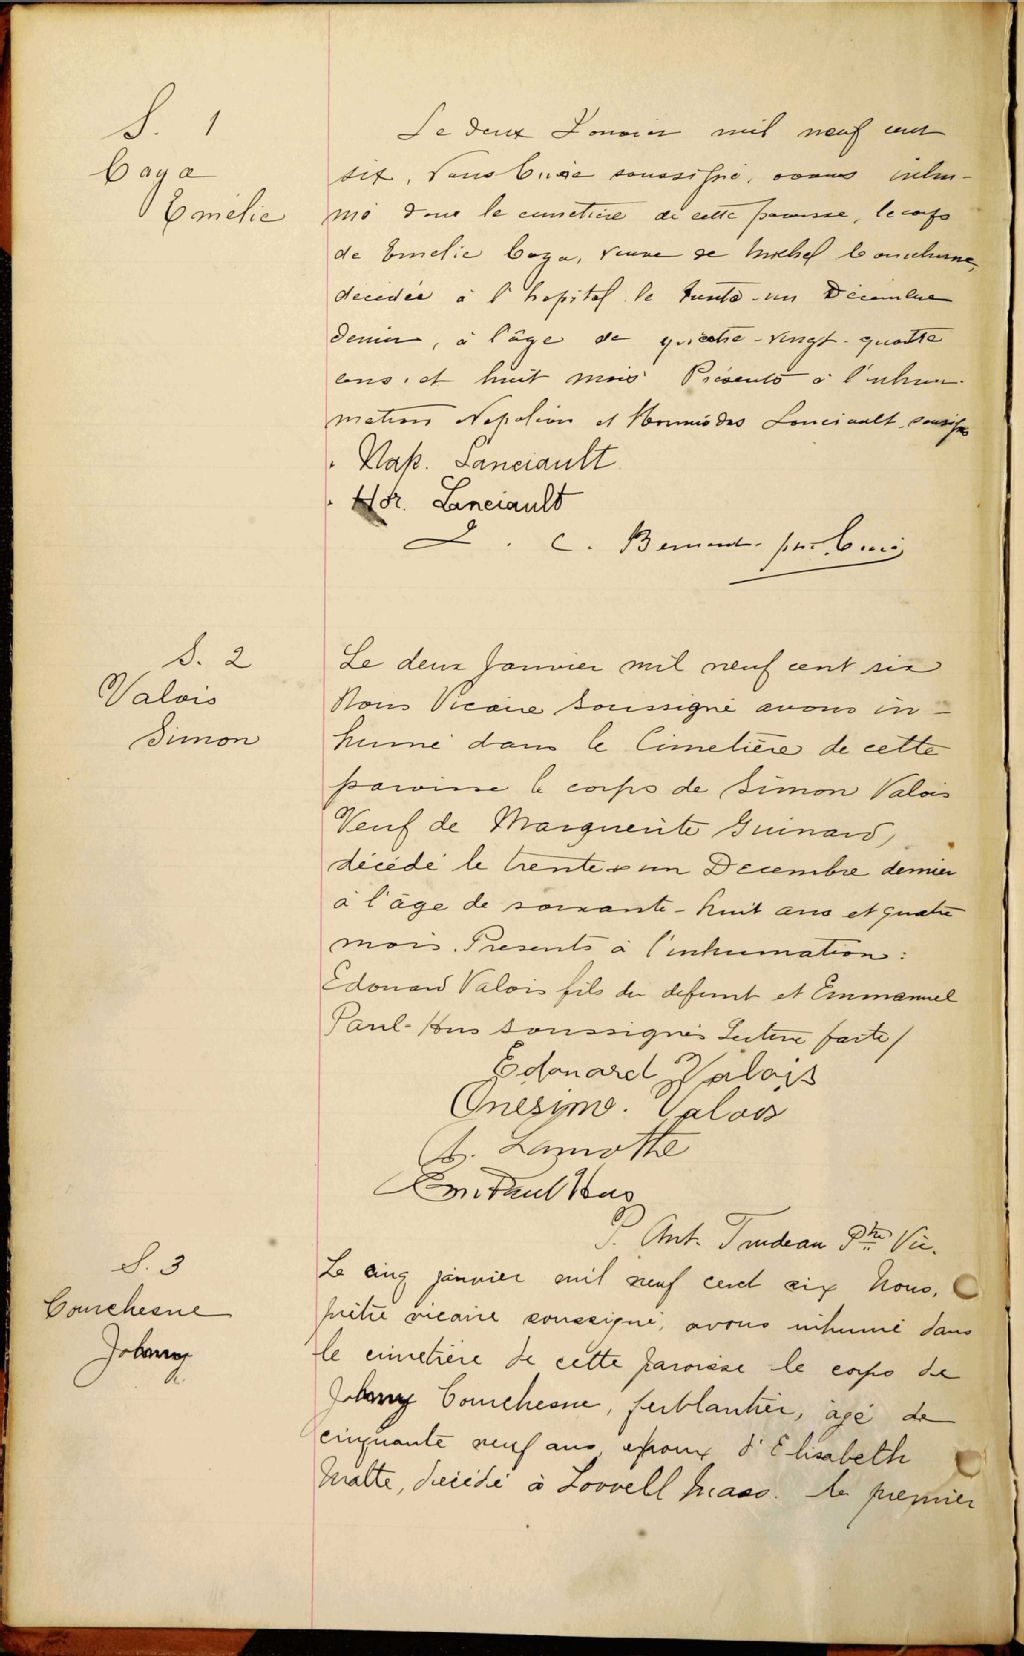 S. 1
Caya
Emélie
Le deux Janvier mil neuf cent
six, Nous Curé soussigné, avons inhu-
mé dans le cimetière de cette paroisse, le corps
de Emélie Caya, veuve de Michel Courchesne,
décédée à l'hopital le trente-un Décembre
dernier, à l'âge de quatre-vingt-quatre
ans, et huit mois Présents à l'inhu-
mation Napoléon et Hormisdas Lanciault, soussignés
Nap. Lanciault
Hor. Lanciault
C. ptre. Curé
S. 2
Valois
Simon
Le deux Janvier mil neuf cent six
Nous Vicaire Soussigné avons in-
humé dans le Cimetière de cette
paroisse le corps de Simon Valois
Veuf de Marguerite Guinard,
décédé le trente & un Decembre dernier
à l'âge de soixante-huit ans et quatre
mois. Presents à l'inhumation:
Edouard Valois fils du defunt et Emmanuel
Paul-Hus soussignés Lecture faite/
Edouard Valois
Onésime. Valois
A. Lamothe
Em. Paul Hus
P. Ant. Trudeau Ptre Vic.
S. 3
Courchesne
Johnny
Le cinq janvier mil neuf cent six Nous,
prêtre vicaire soussigné, avons inhumé dans
le cimetière de cette paroisse le corps de
Johnny Courchesne, ferblantier, âgé de
cinquante neuf ans, époux d'Elisabeth
Matte, décédé à Lowell Mass. le premier